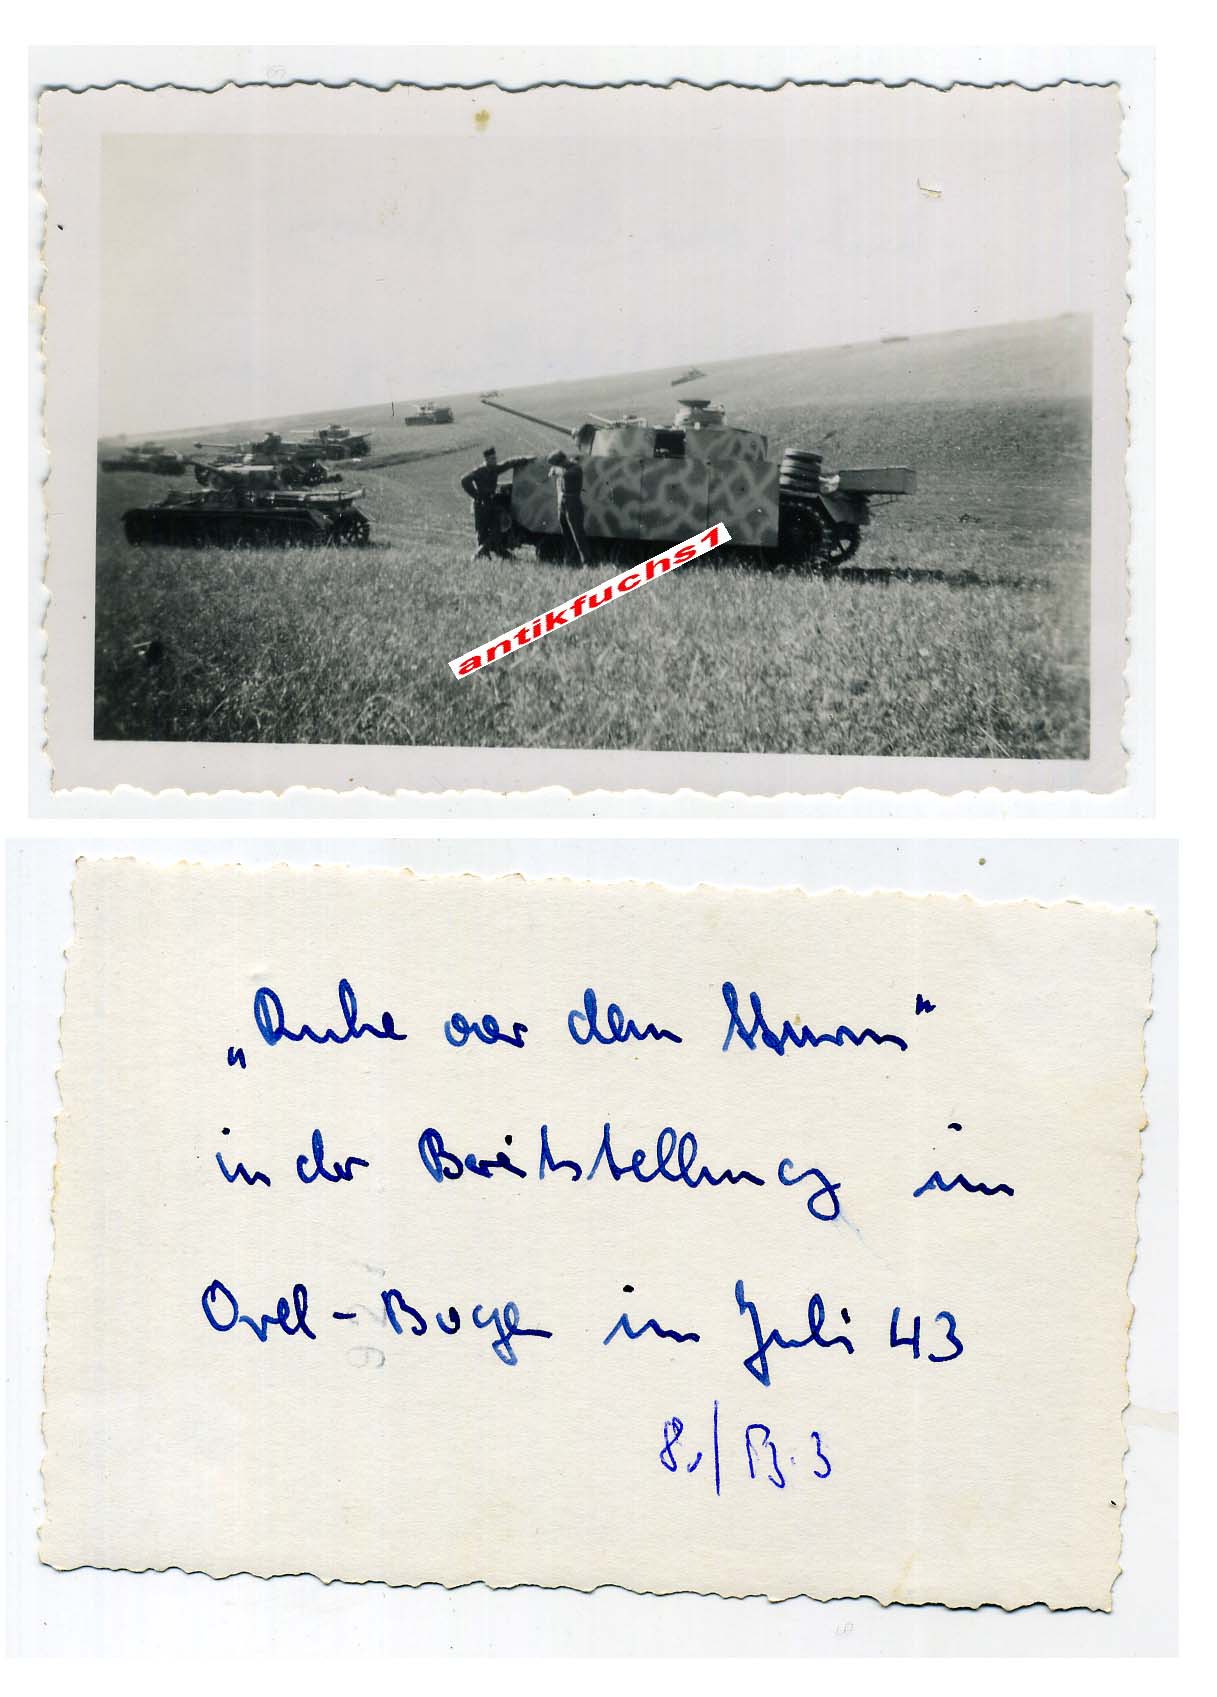 antikfuchs1
„Ruhe vor dem Sturm"
in der Bereitstellung im
Orel-Bogen im Juli 43
8./Pz. 3